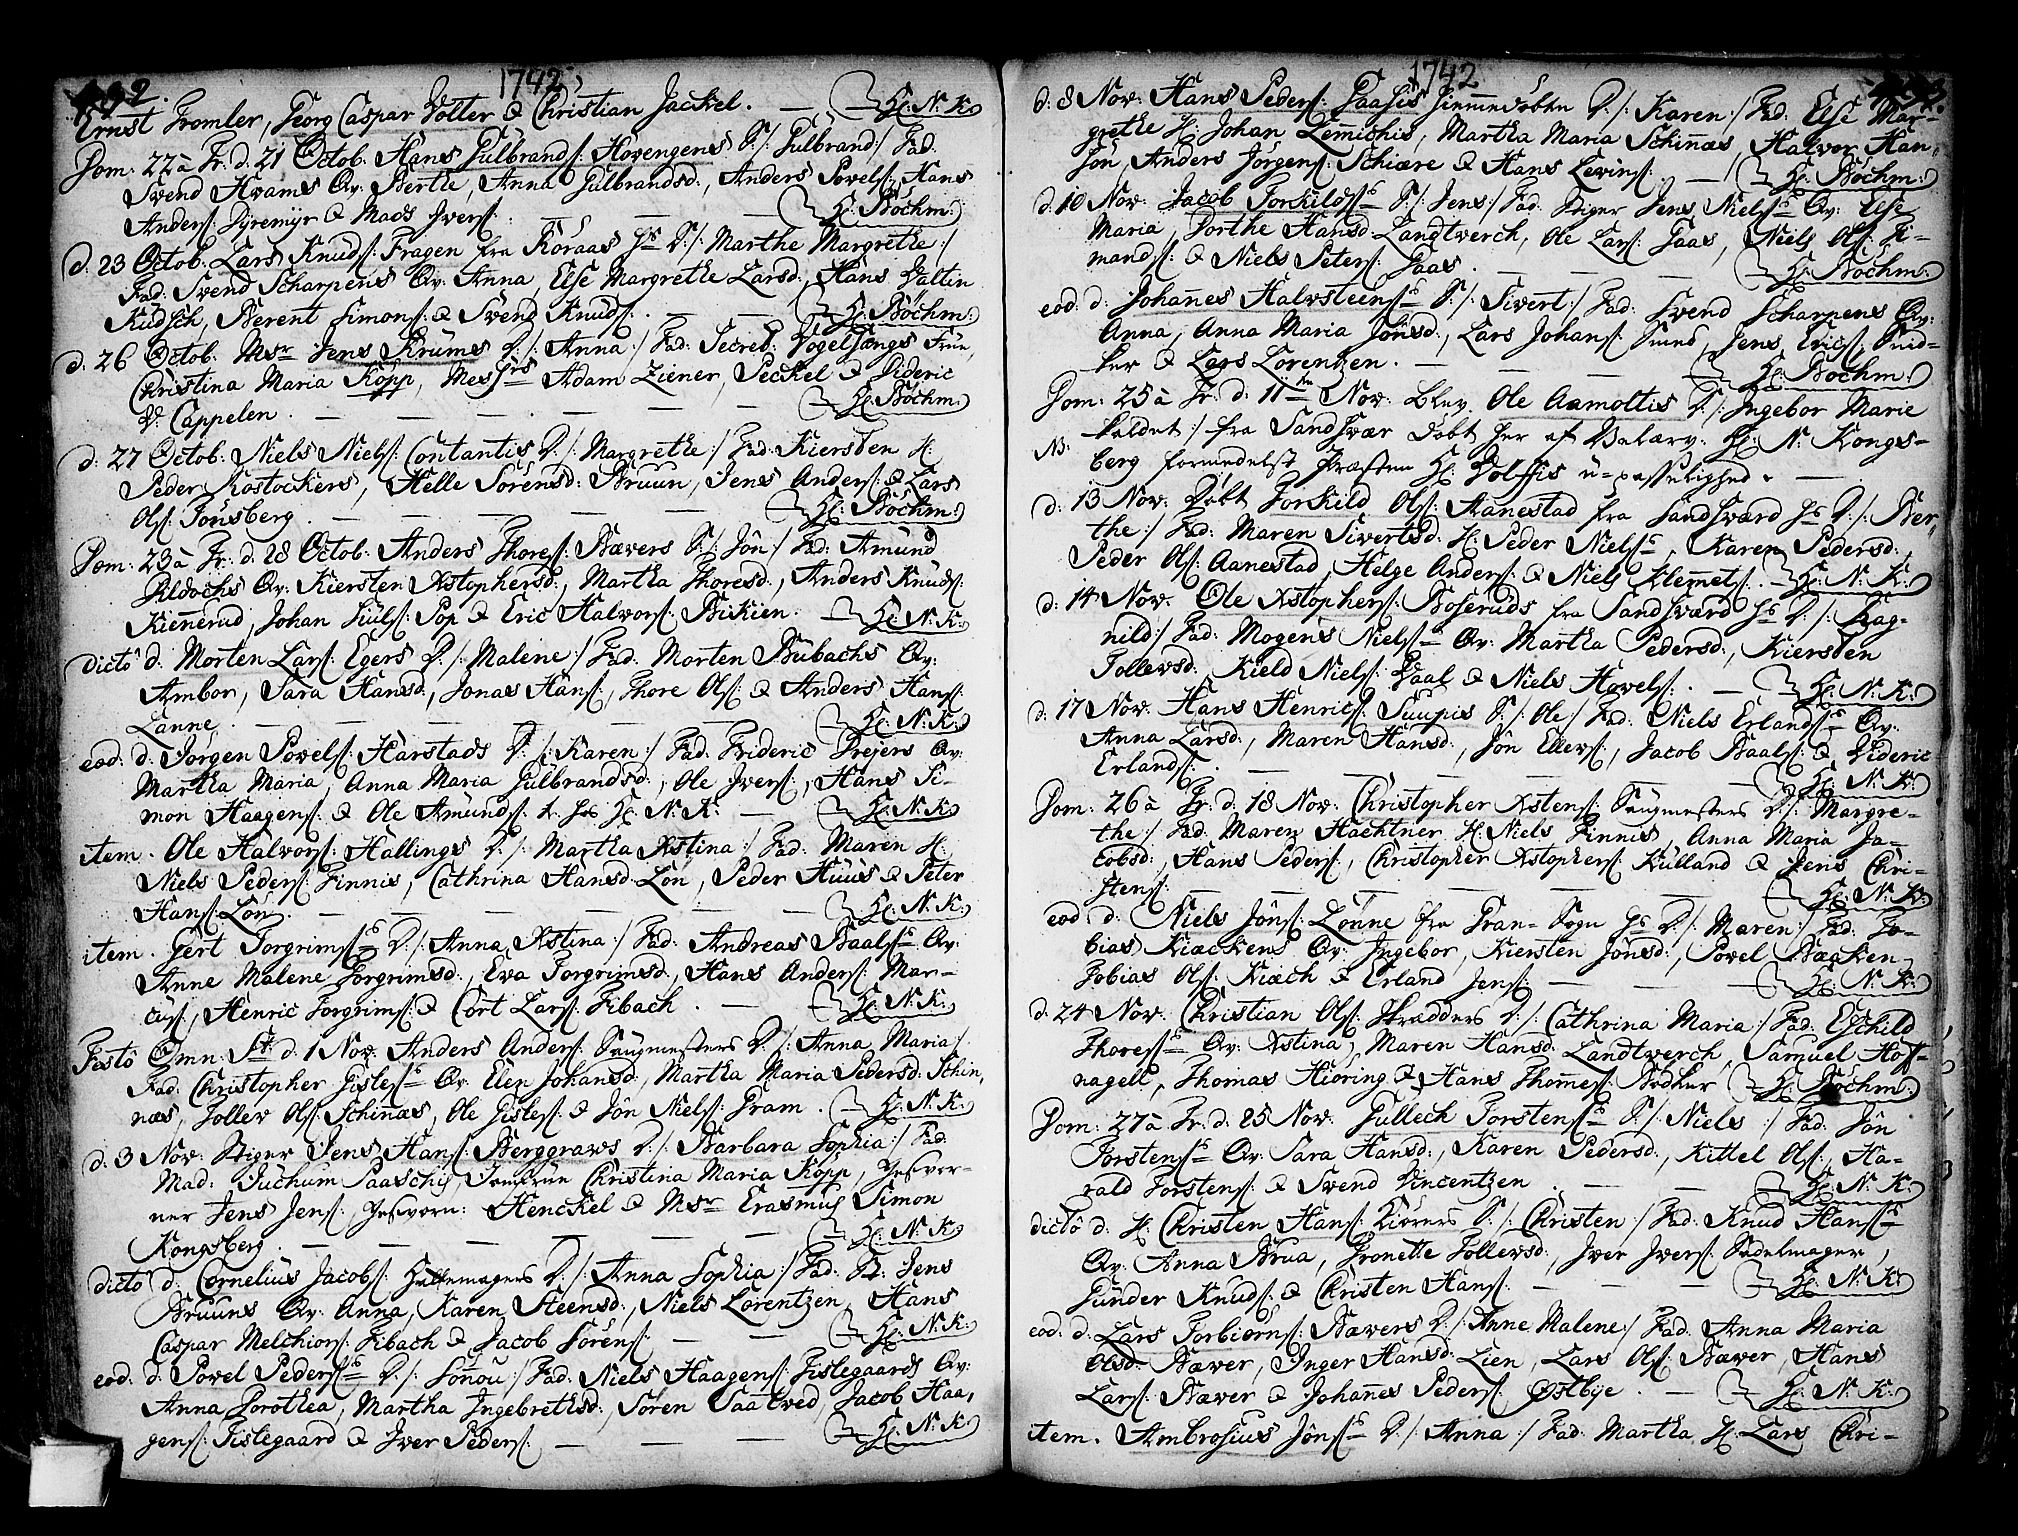 492.
1742
Ernst Tromler, Georg Caspar Volter & Christian Jackel. — Hr. N. K.
Dom: 22 à Tr. d. 21 Octob. Hans Gulbrands: Hovengens S./: Gulbrand:/ Fad.
Svend Hvams Qv: Berte, Anna Gulbrandsd:, Anders Povels:, Hans
Anders: Dyremyr & Mads Ivers: — Hr. Bochm:
d: 23 Octob. Lars Knuds: Fragen fra Koraas hs D./: Marthe Margrethe:/
Fad: Svend Scharpens Qv: Anna, Else Margrethe Larsd:, Hans Valtin
Kudsch, Berent Simons: & Svend Knuds: — Hr. Bochm:
d. 26 Octob. Msr Jens Krums D./: Anna:/ Fad: Secret: Vogelsangs Frue,
Christina Maria Kopp, Messrs Adam Ziener, Seckel & Dideric
V. Cappelen. — Hr. Bochm:
d: 27 Octob. Niels Niels: Contantis D./: Margrethe:/ Fad: Kiersten H:
Peder Rostockers, Helle Sørensd: Bruun, Jens Anders: & Lars
Ols: Tonsberg. — Hr. Bochm:
Dom: 23 à Tr. d. 28 Octob. Anders Thores: Bævers S./: Jôn:/ Fad: Amund
Pildochs Qv: Kiersten Xstophersd:, Martha Thoresd:, Anders Knuds:
Kiennerud, Johan Juls: Sop & Eric Halvors: Bikien. — Hr. N. K:
dictô d. Morten Lars: Egers D./: Malene:/ Fad: Morten Bubachs Qv:
Ambor, Sara Hansd:, Jonas Hans:, Thore Ols: & Anders Hans:
Lanne. — Hr. N. K:
eod: d. Jorgen Povels: Harstads D./: Karen:/ Fad: Frideric Drejers Qv:
Martha Maria, Anna Maria Gulbrandsd:, Ole Ivers:, Hans Si-
mon Haagens: & Ole Amunds: Hr. N. K. — Hr. N. K:
item. Ole Halvors: Hallings D./: Martha Xstina:/ Fad: Maren H:
Niels Peders: Finnis, Cathrina Hansd: Lon, Peder Huus & Peter
Hans: Lôn. — Hr. N. K:
item. Gert Torgrims: D./: Anna Xstina:/ Fad: Andreas Baals: Qv:
Anne Malene Torgrimsd:, Eva Torgrimsd:, Hans Anders: Mar-
cus:, Henric Torgrims: & Cort Lars: Fibach. — Hr. N. K:
Festô Omn: St: d. 1 Nov: Anders Anders: Saugmesters D./: Anna Maria:/
Fad: Christopher Gisles: Qv: Elen Johansd:, Martha Maria Pedersd: Schin,
næs, Tollev Ols: Schinnæs, Ole Gisles: & Jôn Niels: Tram. — Hr. N. K:
d. 3 Nov: Stiger Jens Hans: Berggraws D./: Barbara Sophia:/ Fad:
Mad: Juchum Paaschis, Jomfrue Christina Maria Kopp, Geschwor-
ner Jens Jens:, Geschworn: Henckel & Msr Erasmus Simon
Kongsberg. — Hr. N. K:
dictô d. Cornelius Jacobs: Hattemagers D./: Anna Sophia:/ Fad: B: Jens
Bruuns Qv: Anna, Karen Steensd:, Niels Lorentzen, Hans
Caspar Melchiors: Fibach & Jacob Sôrens: — Hr. N. K:
eod: d. Povel Peders: D./: Sônou:/ Fad: Niels Haagens: Tislegaards Qv:
Anna Dorothea, Martha Ingebrethsd:, Sôren Saatved, Jacob Haa-
gens: Tislegaard & Iver Peders: — Hr. N. K:
1742
d: 8 Nov: Hans Peders: Gaasis hiemmedobte D./: Karen:/ Fad: Else Mar-
grethe H. Johan Lemmichis, Martha Maria Schinnæs, Halvor Han-
sôn, Anders Jôrgens: Schiære & Hans Levins: — Hr. Bochm:
d: 10 Nov: Jacob Torkilds: S./: Jens:/ Fad: Stiger Jens Niels: Qv: Else
Maria, Dorthe Hansd: Landtverch, Ole Lars: Gaas, Niels Ols: Ti-
mands: & Niels Peters: Gaas. — Hr. Bochm:
eod: d: Johannes Halvsteens: S./: Sivert:/ Fad: Svend Scharpens Qv:
Anna, Anna Maria Jônsd:, Lars Johans: Smed, Jens Erics: Snid-
ker & Lars Lorentzen. — Hr. Bochm:
Dom: 25 à Tr. d: 11te Nov: blev Ole Aamottis D./: Ingebor Marie
NB. kaldet:/ fra Sandsvær dobt her af Velærv: Hr. N. Kongs-
berg formedelst Præsten Hr. Wolffis u-passelighed. —
d: 13 Nov: Dobt Torkild Ols: Aanestad fra Sandsværd hs D./: Ber-
the:/ Fad: Maren Sivertsd: H: Peder Niels:, Karen Pedersd:,
Peder Ols: Aanestad, Helge Anders: & Niels Klemmets: — Hr. N. K:
d: 14 Nov: Ole Xstophers: Boseruds fra Sandsværd hs D./: Rag-
nild:/ Fad: Mogens Niels: Qv: Martha Pedersd:, Kiersten
Tollevsd:, Kield Niels: Vaal & Niels Hovels: — Hr. N. K:
d: 17 Nov: Hans Henrics: Suupis S./: Ole:/ Fad: Niels Erlands: Qv:
Anna Larsd:, Maren Hansd:, Jôn Ellevs:, Jacob Baals: & Dideric
Erlands: — Hr. N. K:
Dom: 26 à Tr. d. 18 Nov: Christopher Xstens: Saugmesters D./: Margre-
the:/ Fad: Maren Hachtner H: Niels Finnis, Anna Maria Ja-
cobsd:, Hans Peders:, Christopher Xstophers: Kulland & Jens Chri-
stens: — Hr. N. K:
eod d: Niels Jôns: Lonne fra Tran-Sogn hs D./: Maren:/ Fad: To-
bias Kiækens Qv: Ingebor, Kiersten Jônsd:, Povel Bæcken
Tobias Ols: Kiæch & Erland Jens: — Hr. N. K:
d. 24 Nov: Christian Ols: Skrædders D./: Cathrina Maria:/ Fad: Eschild
Thores: Qv: Xstina, Maren Hansd: Landtverch, Samuel Hoff-
nagell, Thomas Hioring & Hans Thomes: Bodker — Hr. Bochm:
Dom: 27 à Tr. d. 25 Nov: Gullech Torstens: S./: Niels:/ Fad: Jôn
Torstens: Qv: Sara Hansd:, Karen Pedersd:, Kittel Ols:, Ha-
rald Torstens: & Svend Vincentzen. — Hr. N. K:
dictô d: H: Christen Hans: Kiorers S./: Christen:/ Fad: Knud Hans:
Qv: Anna Brua, Gronette Tollevsd:, Iver Ivers: Sadelmager,
Gunder Knuds: & Christen Hans: — Hr. N. K:
eod: d: Lars Torbiôrns: Bævers D./: Anne Malene:/ Fad: Anna Maria
Olsd: Bæver, Inger Hansd: Lien, Lars Ols: Bæver, Hans
Lars: Bæver & Johannes Peders: Østbye. — Hr. N. K:
item. Ambrosius Jôns: D./: Anna:/ Fad: Martha H: Lars Chri-